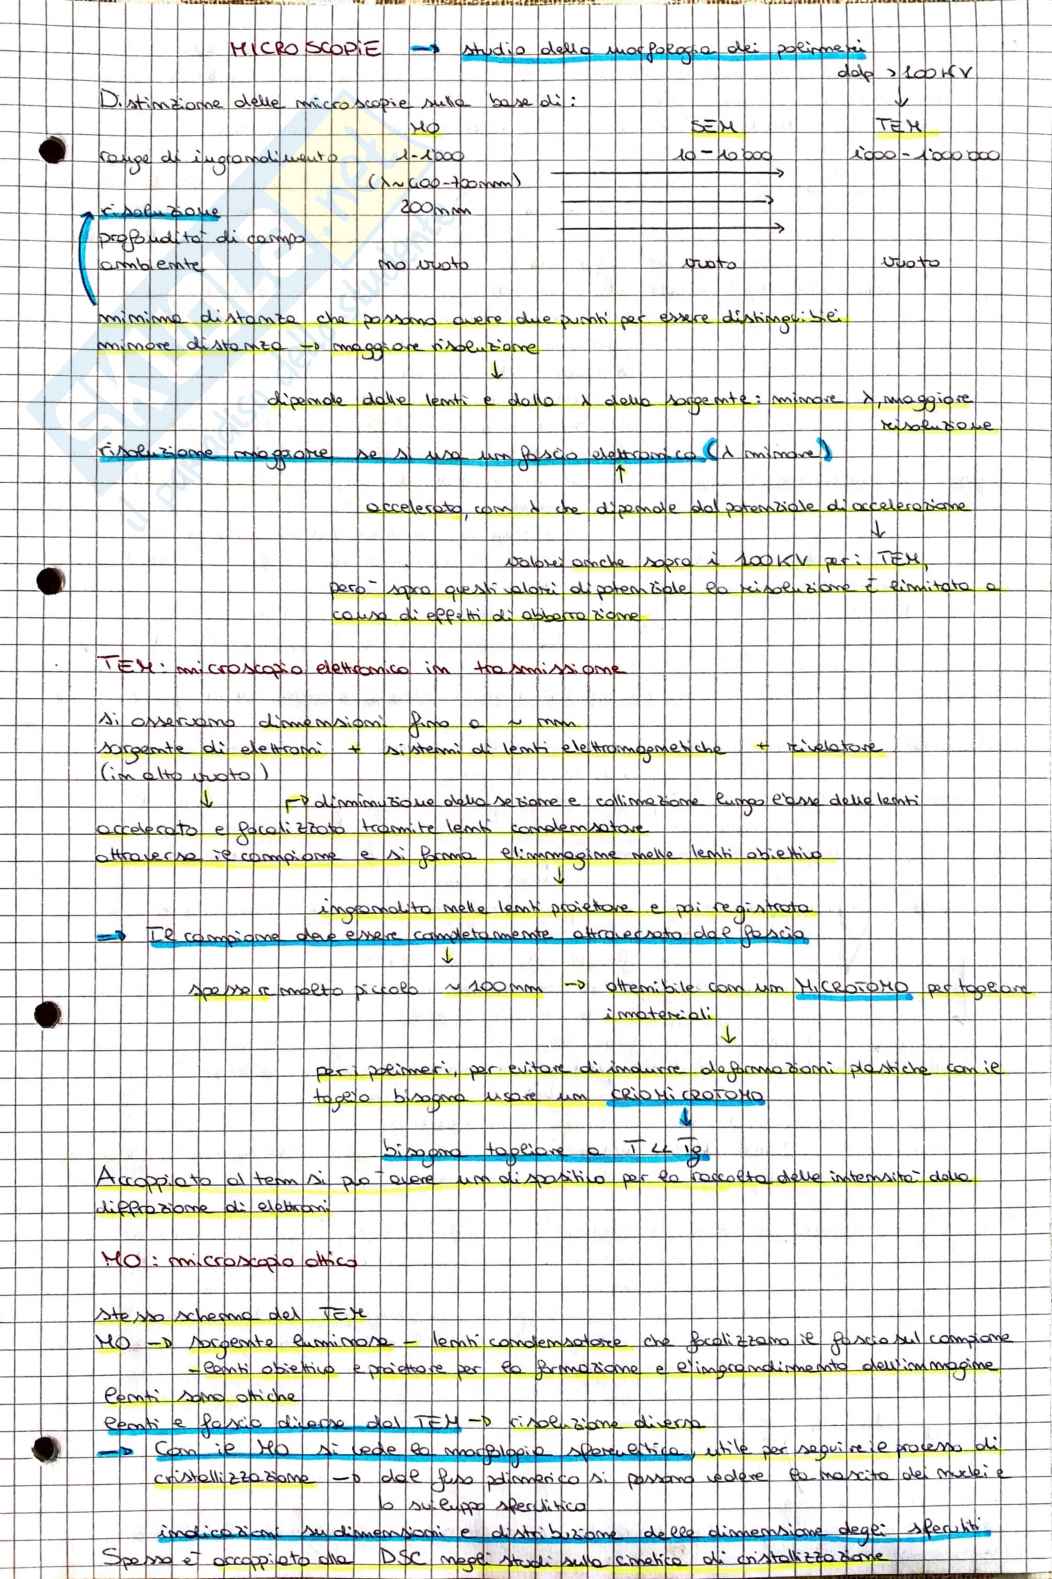 MICROSCOPIE → studio della morfologia dei polimeri
ddp > 100 KV
Distinzione delle microscopie sulla base di:
MO SEM TEM
range di ingrandimento 1-1'000 10-10'000 1'000-1'000'000
(λ~400-700nm)
risoluzione 200nm
profondità di campo
ambiente no vuoto vuoto vuoto
minima distanza che possono avere due punti per essere distinguibili
minore distanza → maggiore risoluzione
dipende dalle lenti e dalla λ della sorgente: minore λ, maggiore
risoluzione
risoluzione maggiore se si usa un fascio elettronico (λ minore)
accelerato, con λ che dipende dal potenziale di accelerazione
valori anche sopra i 100KV per: TEM,
però sopra questi valori di potenziale la risoluzione è limitata a
causa di effetti di abberrazione
TEM: microscopio elettronico in trasmissione
si osservano dimensioni fino a ~ nm
sorgente di elettroni + sistemi di lenti elettromagnetiche + rivelatore
(in alto vuoto)
→ diminuzione della sezione e collimazione lungo l'asse delle lenti
accelerato e focalizzato tramite lenti condensatore
attraversa il campione e si forma l'immagine nelle lenti obiettivo
ingrandita nelle lenti proiettore e poi registrata
→ Il campione deve essere completamente attraversato dal fascio
spessore molto piccolo ~100nm → ottenibile con un MICROTOMO per tagliare
i materiali
per i polimeri, per evitare di indurre deformazioni plastiche con il
taglio bisogna usare un CRIOMICROTOMO
bisogna tagliare a T << Tg
Accoppiato al tem si può avere un dispositivo per la raccolta delle intensità della
diffrazione di elettroni
MO: microscopio ottico
stesso schema del TEM
MO → sorgente luminosa - lenti condensatore che focalizzano il fascio sul campione
- lenti obiettivo e proiettore per la formazione e l'ingrandimento dell'immagine
lenti sono ottiche
lenti e fascio diverse dal TEM → risoluzione diversa
→ Con il MO si vede la morfologia sferulitica, utile per seguire il processo di
cristallizzazione → dal fuso polimerico si possono vedere la nascita dei nuclei e
lo sviluppo sferulitico
indicazioni su dimensioni e distribuzione delle dimensione degli sferuliti
Spesso è accoppiato alla DSC negli studi sulla cinetica di cristallizzazione